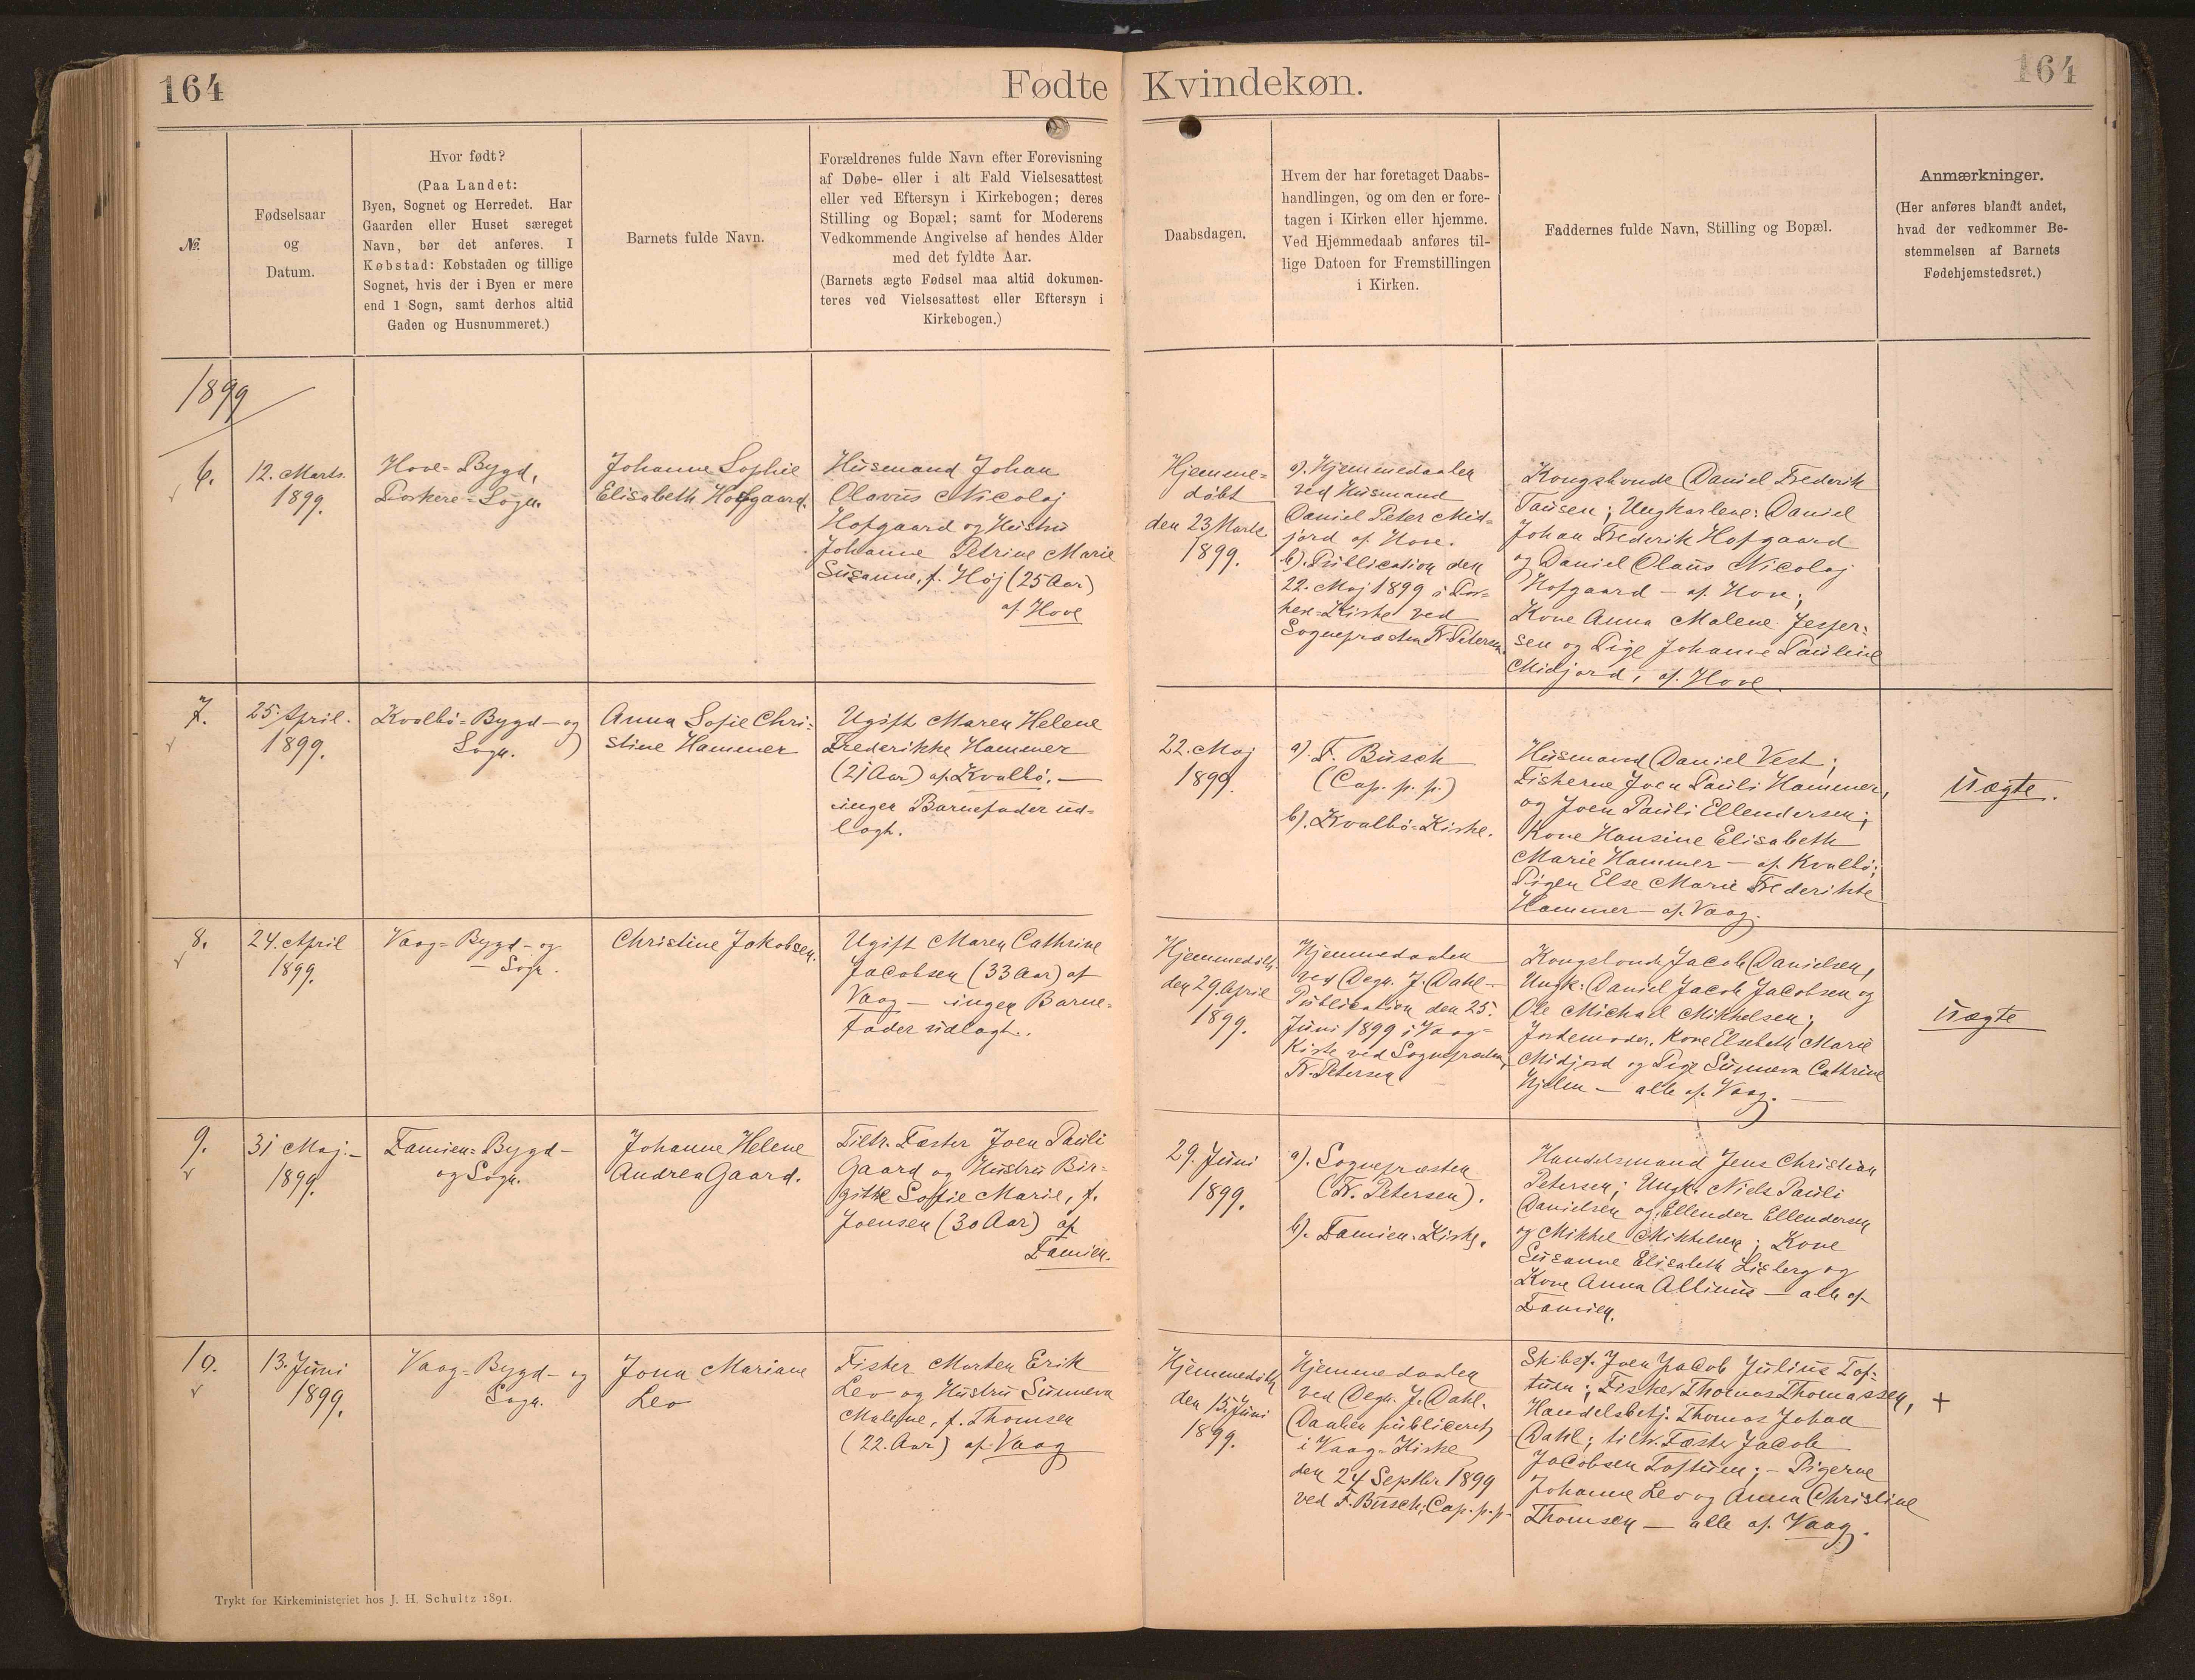 164
Fødte Kvindekøn.
164
№.
Fødselsaar
og
Datum.
Hvor født?
(Paa Landet:
Byen, Sognet og Herredet. Har
Gaarden eller Huset særeget
Navn, bør det anføres. I
Købstad: Købstaden og tillige
Sognet, hvis der i Byen er mere
end 1 Sogn, samt derhos altid
Gaden og Husnummeret.)
Barnets fulde Navn.
Forældrenes fulde Navn efter Forevisning
af Døbe- eller i alt Fald Vielsesattest
eller ved Eftersyn i Kirkebogen; deres
Stilling og Bopæl; samt for Moderens
Vedkommende Angivelse af hendes Alder
med det fyldte Aar.
(Barnets ægte Fødsel maa altid dokumen-
teres ved Vielsesattest eller Eftersyn i
Kirkebogen.)
Daabsdagen.
Hvem der har foretaget Daabs-
handlingen, og om den er fore-
tagen i Kirken eller hjemme.
Ved Hjemmedaab anføres til-
lige Datoen for Fremstillingen
i Kirken.
Faddernes fulde Navn, Stilling og Bopæl.
Anmærkninger.
(Her anføres blandt andet,
hvad der vedkommer Be-
stemmelsen af Barnets
Fødehjemstedsret.)
1899
6.
12. Marts
1899.
Hove-Bygd,
Porkere-Sogn.
Johanne Sophie
Elisabeth Hofgaard.
Husmand Johan
Olavus Nicolaj
Hofgaard og Hustru
Johanne Petrine Marie
Susanne, f. Høj (25 Aar)
af Hove
Hjemme-
døbt
den 23 Marts
1899.
a). Hjemmedaaben
ved Husmand
Daniel Peter Mid-
jord af Hove.
b). Publication den
22. Maj 1899 i Por-
kere-Kirke ved
Sognepræsten Fr. Petersen.
Kongsbonde Daniel Frederik
Tausen; Ungkarlene: Daniel
Johan Frederik Hofgaard
og Daniel Olaus Nicolaj
Hofgaard – af Hove;
Kone Anna Malene Jesper-
sen og Pige Johanne Pauline
Midjord, af Hove.
7.
25 April.
1899.
Kvalbø-Bygd- og
Sogn.
Anna Sofie Chri-
stine Hammer
Ugift Maren Helene
Frederikke Hammer
(21 Aar) af Kvalbø. –
ingen Barnefader ud-
lagt.
22. Maj
1899.
a). F. Busch
(Cap. p. p.)
b). Kvalbø-Kirke.
Husmand Daniel Vest;
Fiskerne Joen Pauli Hammer,
og Joen Pauli Ellendersen;
Kone Hansine Elisabeth
Marie Hammer – af Kvalbø;
Pigen Else Marie Frederikke
Hammer – af Vaag.
Uægte.
8.
24. April
1899.
Vaag-Bygd- og
– Sogn.
Christine Jakobsen.
Ugift Maren Cathrine
Jacobsen (33 Aar) af
Vaag – ingen Barne-
fader udlagt.
Hjemmedøbt
den 29. April
1899.
Hjemmedaaben
ved Degn. J. Dahl –
Publication den 25.
Juni 1899 i Vaag-
Kirke ved Sognepræsten,
Fr. Petersen
Kongsbonde Jacob Danielsen,
Ungk: Daniel Jacob Jacobsen og
Ole Michael Mikkelsen;
Jordemoder, Kone Elsebeth Marie
Midjord og Pige Sunneva Cathrine
Hjelm – alle af Vaag. –
Uægte
9.
31 Maj –
1899.
Famien-Bygd-
og Sogn.
Johanne Helene
Andrea Gaard.
Tiltr. Fæster Joen Pauli
Gaard og Hustru Bir-
gitte Sofie Marie, f.
Joensen (30 Aar) af
Famien.
29. Juni
1899.
a). Sognepræsten
(Fr. Petersen).
b). Famien-Kirke.
Handelsmand Jens Christian
Petersen; Ungk. Niels Pauli
Danielsen og Ellender Ellendersen
og Mikkel Mikkelsen; Kone
Susanne Elisabeth Lisberg og
Kone Anna Allinus – alle af
Famien.
10.
13. Juni
1899.
Vaag-Bygd- og
Sogn.
Jona Mariane
Leo
Fisker Morten Erik
Leo og Hustru Sunneva
Malene, f. Thomsen
(22. Aar) af Vaag
Hjemmedøbt
den 15. Juni
1899.
Hjemmedaaben
ved Degn. J. Dahl.
Daaben publiceret
i Vaag-Kirke
den 24 Septbr 1899
ved F. Busch, Cap. p. p.
Skibsf. Joen Jacob Julius Tof-
tum; Fisker Thomas Thomassen,
Handelsbetj. Thomas Johan
Dahl; tiltr. Fæster Jacob
Jacobsen Toftum; – Pigerne
Johanne Leo og Anna Christine
Thomsen – alle af Vaag.
+
Trykt for Kirkeministeriet hos J. H. Schultz 1891.